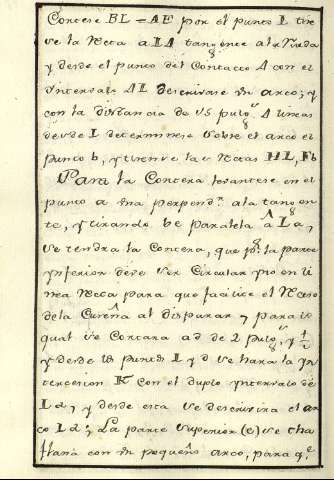 Contere BL = AE por el punto L tire
se la Recta a LA tangente al Rueda
y desde el punto del Contacto A con el
Yntervalo AL descrivase Un arco; y
con la distancia de 05 pulgs 4 lineas
desde L determinese sobre el arco el
punto b, y tirense las Rectas HL, Fb
Para la Contera levantese en el
punto a Una perpendr. a la tangen
te, y tirando be paralela a La,
se tendra la Contera, que pr. la parte
ynferior deve ser Circular y no en li
nea Recta para que facilite el Receso
de la Cureña al disparar, y para lo
qual se Cortara ad de 2 pulgs. y 1/2
y desde los puntos L y d se hara la yn
tercesion K con el duplo yntervalo de
Ld, y desde esta se descrivira el ar
co Ld; La parte superior (e) se cha
flana con Un pequeño arco, para qe.